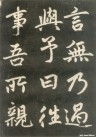 言無乃過
與予曰徃
事吾所親